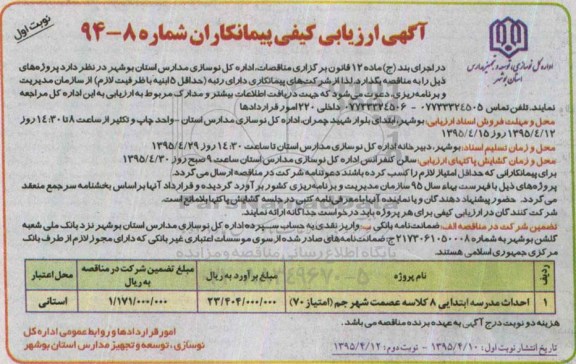 نوبت اول
آگهی ارزیابی کیفی پیمانکاران شماره ۸-۹۴
اداره کل نوسازی، توسعه و تجهیز مدارس
استان بوشهر
در اجرای بند (ج) ماده ۱۲ قانون برگزاری مناقصات، اداره کل نوسازی مدارس استان بوشهر در نظر دارد پروژه‌های
ذیل را به مناقصه بگذارد. لذا از شرکت‌های پیمانکاری دارای رتبه (حداقل ۵ ابنیه با ظرفیت لازم) از سازمان مدیریت
و برنامه‌ریزی، دعوت می‌شود که جهت دریافت اطلاعات بیشتر و مدارک مربوط به ارزیابی به این اداره کل مراجعه
نمایند. تلفن تماس ۰۷۷۳۳۳۲۴۵۰۵ - ۰۷۷۳۳۳۲۴۵۰۶ داخلی ۲۲۰ امور قراردادها
محل و مهلت فروش اسناد ارزیابی: بوشهر، ابتدای بلوار شهید چمران، اداره کل نوسازی مدارس استان - واحد چاپ و تکثیر از ساعت ۸ تا ۱۴:۳۰ روز
۱۳۹۵/۴/۱۲ لغایت روز ۱۳۹۵/۴/۱۵
محل و زمان تسلیم اسناد: بوشهر، دبیرخانه اداره کل نوسازی مدارس استان تا ساعت ۱۴:۳۰ روز ۱۳۹۵/۴/۲۹
محل و زمان گشایش پاکتهای ارزیابی: سالن کنفرانس اداره کل نوسازی مدارس استان ساعت ۹ صبح روز ۱۳۹۵/۴/۳۰
برای پیمانکارانی که حداقل امتیاز لازم را کسب کرده باشند دعوتنامه شرکت در مناقصه ارسال می‌گردد.
پروژه‌های ذیل با فهرست بهاء سال ۹۵ سازمان مدیریت و برنامه‌ریزی کشور برآورد گردیده و قرارداد آنها بر اساس بخشنامه سرجمع منعقد
می‌گردد. حضور پیشنهاد دهندگان و یا نماینده آنها با معرفی‌نامه کتبی در جلسه گشایش پاکتها بلامانع است.
شرکت کنندگان در ارزیابی کیفی برای هر پروژه باید درخواست جداگانه ارائه نمایند.
تضمین شرکت در مناقصه الف: ضمانت‌نامه بانکی ب- واریز نقدی به حساب سپرده اداره کل نوسازی مدارس استان بوشهر نزد بانک ملی شعبه
گلشن بوشهر به شماره ۲۱۷۳۰۶۱۰۵۰۰۰۸ ج- ضمانت‌نامه‌های صادر شده از سوی موسسات اعتباری غیر بانکی که دارای مجوز لازم از طرف بانک
مرکزی جمهوری اسلامی هستند.
ردیف | نام پروژه | مبلغ برآورد به ریال | مبلغ تضمین شرکت در مناقصه به ریال | محل اعتبار
۱ | احداث مدرسه ابتدایی ۸ کلاسه عصمت شهر جم (امتیاز ۷۰) | ۲۳/۴۰۴/۰۰۰/۰۰۰ | ۱/۱۷۱/۰۰۰/۰۰۰ | استانی
هزینه دو نوبت درج آگهی به عهده برنده مناقصه می‌باشد.
تاریخ انتشار نوبت اول: ۱۳۹۵/۴/۱۰ - نوبت دوم: ۱۳۹۵/۴/۱۲
امور قراردادها و روابط عمومی اداره کل
نوسازی، توسعه و تجهیز مدارس استان بوشهر